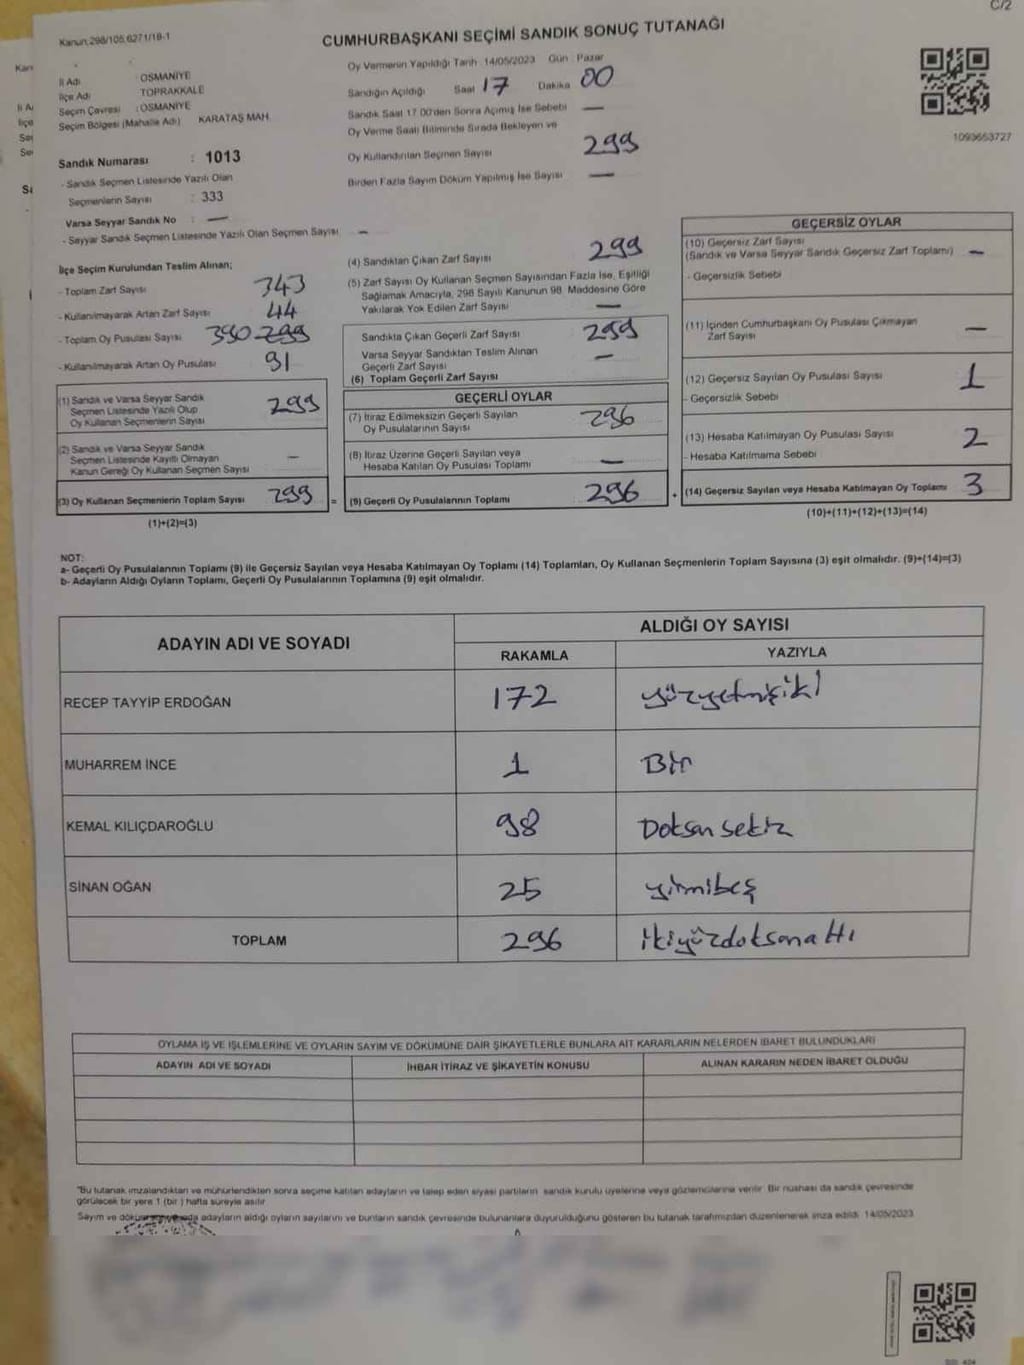 C/2
Kanun:298/105,6271/18-1
CUMHURBAŞKANI SEÇİMİ SANDIK SONUÇ TUTANAĞI
İl Adı : OSMANİYE
İlçe Adı : TOPRAKKALE
Seçim Çevresi : OSMANİYE
Seçim Bölgesi (Mahalle Adı) KARATAŞ MAH.
Sandık Numarası : 1013
- Sandık Seçmen Listesinde Yazılı Olan
Seçmenlerin Sayısı : 333
Varsa Seyyar Sandık No : —
- Seyyar Sandık Seçmen Listesinde Yazılı Olan Seçmen Sayısı —
Oy Vermenin Yapıldığı Tarih :14/05/2023 Gün : Pazar
Sandığın Açıldığı Saat 17 Dakika 00
Sandık Saat 17.00'den Sonra Açılmış İse Sebebi —
Oy Verme Saati Bitiminde Sırada Bekleyen ve
Oy Kullandırılan Seçmen Sayısı 299
Birden Fazla Sayım Döküm Yapılmış İse Sayısı —
1093653727
İlçe Seçim Kurulundan Teslim Alınan;
- Toplam Zarf Sayısı 343
- Kullanılmayarak Artan Zarf Sayısı 44
- Toplam Oy Pusulası Sayısı 390 299
- Kullanılmayarak Artan Oy Pusulası 91
(1) Sandık ve Varsa Seyyar Sandık
Seçmen Listesinde Yazılı Olup
Oy Kullanan Seçmenlerin Sayısı 299
(2) Sandık ve Varsa Seyyar Sandık
Seçmen Listesinde Kayıtlı Olmayan
Kanun Gereği Oy Kullanan Seçmen Sayısı —
(3) Oy Kullanan Seçmenlerin Toplam Sayısı 299
(1)+(2)=(3)
(4) Sandıktan Çıkan Zarf Sayısı 299
(5) Zarf Sayısı Oy Kullanan Seçmen Sayısından Fazla İse, Eşitliği
Sağlamak Amacıyla, 298 Sayılı Kanunun 98. Maddesine Göre
Yakılarak Yok Edilen Zarf Sayısı —
Sandıkta Çıkan Geçerli Zarf Sayısı 299
Varsa Seyyar Sandıktan Teslim Alınan
Geçerli Zarf Sayısı —
(6) Toplam Geçerli Zarf Sayısı
GEÇERLİ OYLAR
(7) İtiraz Edilmeksizin Geçerli Sayılan
Oy Pusulalarının Sayısı 296
(8) İtiraz Üzerine Geçerli Sayılan veya
Hesaba Katılan Oy Pusulası Toplamı —
= (9) Geçerli Oy Pusulalarının Toplamı 296
GEÇERSİZ OYLAR
(10) Geçersiz Zarf Sayısı
(Sandık ve Varsa Seyyar Sandık Geçersiz Zarf Toplamı) —
- Geçersizlik Sebebi
(11) İçinden Cumhurbaşkanı Oy Pusulası Çıkmayan
Zarf Sayısı —
(12) Geçersiz Sayılan Oy Pusulası Sayısı 1
- Geçersizlik Sebebi
(13) Hesaba Katılmayan Oy Pusulası Sayısı 2
- Hesaba Katılmama Sebebi
+ (14) Geçersiz Sayılan veya Hesaba Katılmayan Oy Toplamı 3
(10)+(11)+(12)+(13)=(14)
NOT:
a- Geçerli Oy Pusulalarının Toplamı (9) ile Geçersiz Sayılan veya Hesaba Katılmayan Oy Toplamı (14) Toplamları, Oy Kullanan Seçmenlerin Toplam Sayısına (3) eşit olmalıdır. (9)+(14)=(3)
b- Adayların Aldığı Oyların Toplamı, Geçerli Oy Pusulalarının Toplamına (9) eşit olmalıdır.
ADAYIN ADI VE SOYADI ALDIĞI OY SAYISI
RAKAMLA YAZIYLA
RECEP TAYYİP ERDOĞAN 172 yüzyetmişiki
MUHARREM İNCE 1 Bir
KEMAL KILIÇDAROĞLU 98 Doksan sekiz
SİNAN OĞAN 25 yirmibeş
TOPLAM 296 ikiyüzdoksanaltı
OYLAMA İŞ VE İŞLEMLERİNE VE OYLARIN SAYIM VE DÖKÜMÜNE DAİR ŞİKAYETLERLE BUNLARA AİT KARARLARIN NELERDEN İBARET BULUNDUKLARI
ADAYIN ADI VE SOYADI İHBAR İTİRAZ VE ŞİKAYETİN KONUSU ALINAN KARARIN NEDEN İBARET OLDUĞU
"Bu tutanak imzalandıktan ve mühürlendikten sonra seçime katılan adayların ve talep eden siyasi partilerin sandık kurulu üyelerine veya gözlemcilerine verilir. Bir nüshası da sandık çevresinde
görülecek bir yere 1 (bir) hafta süreyle asılır
Sayım ve döküm adayların aldığı oyların sayılarını ve bunların sandık çevresinde bulunanlara duyurulduğunu gösteren bu tutanak tarafımızdan düzenlenerek imza edildi. 14/05/2023